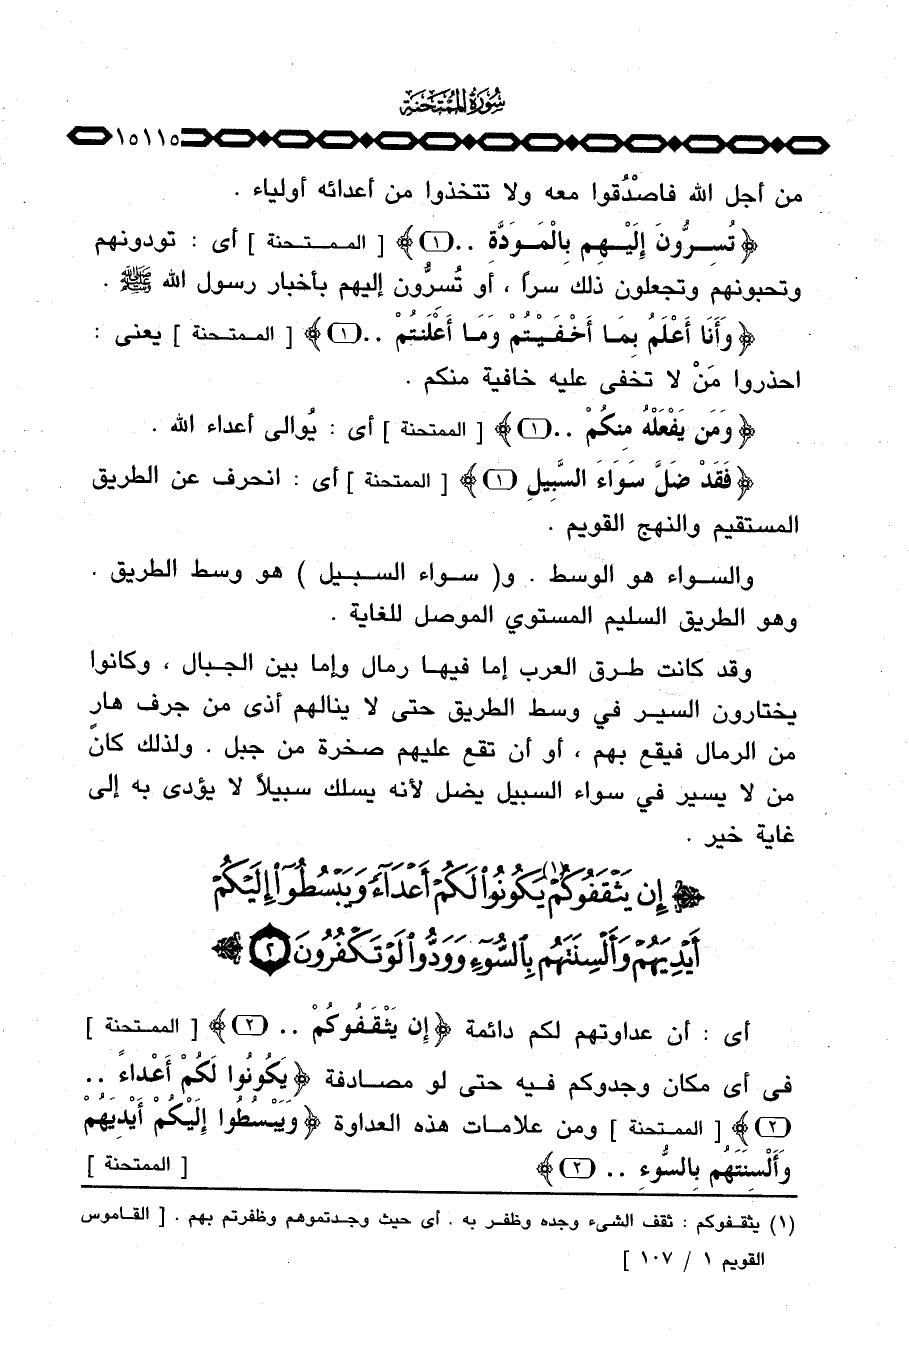 سُورَةُ المُمْتَحَنَةِ
١٥١١٥
من أجل الله فاصْدُقوا معه ولا تتخذوا من أعدائه أولياء .
﴿ تُسِرُّونَ إِلَيْهِم بِالْمَوَدَّةِ .. (١) ﴾ [ الممتحنة ] أى : تودونهم
وتحبونهم وتجعلون ذلك سراً ، أو تُسرُّون إليهم بأخبار رسول الله ﷺ .
﴿ وَأَنَا أَعْلَمُ بِمَا أَخْفَيْتُمْ وَمَا أَعْلَنتُمْ .. (١) ﴾ [ الممتحنة ] يعنى :
احذروا مَنْ لا تخفى عليه خافية منكم .
﴿ وَمَن يَفْعَلْهُ مِنكُمْ .. (١) ﴾ [ الممتحنة ] أى : يُوالى أعداء الله .
﴿ فَقَدْ ضَلَّ سَوَاءَ السَّبِيلِ (١) ﴾ [ الممتحنة ] أى : انحرف عن الطريق
المستقيم والنهج القويم .
والسواء هو الوسط . و( سواء السبيل ) هو وسط الطريق .
وهو الطريق السليم المستوي الموصل للغاية .
وقد كانت طرق العرب إما فيها رمال وإما بين الجبال ، وكانوا
يختارون السير في وسط الطريق حتى لا ينالهم أذى من جرف هارٍ
من الرمال فيقع بهم ، أو أن تقع عليهم صخرة من جبل . ولذلك كان
من لا يسير في سواء السبيل يضل لأنه يسلك سبيلاً لا يؤدى به إلى
غاية خير .
﴿ إِن يَثْقَفُوكُمْ(١) يَكُونُوا۟ لَكُمْ أَعْدَآءً وَيَبْسُطُوٓا۟ إِلَيْكُمْ
أَيْدِيَهُمْ وَأَلْسِنَتَهُم بِٱلسُّوٓءِ وَوَدُّوا۟ لَوْ تَكْفُرُونَ (٢) ﴾
أى : أن عداوتهم لكم دائمة ﴿ إِن يَثْقَفُوكُمْ .. (٢) ﴾ [ الممتحنة ]
فى أى مكان وجدوكم فيه حتى لو مصادفة ﴿ يَكُونُوا لَكُمْ أَعْدَاءً ..
(٢) ﴾ [ الممتحنة ] ومن علامات هذه العداوة ﴿ وَيَبْسُطُوا إِلَيْكُمْ أَيْدِيَهُمْ
وَأَلْسِنَتَهُم بِالسُّوءِ .. (٢) ﴾ [ الممتحنة ]
(١) يثقفوكم : ثقف الشىء وجده وظفر به . أى حيث وجدتموهم وظفرتم بهم . [ القاموس
القويم ١ / ١٠٧ ]